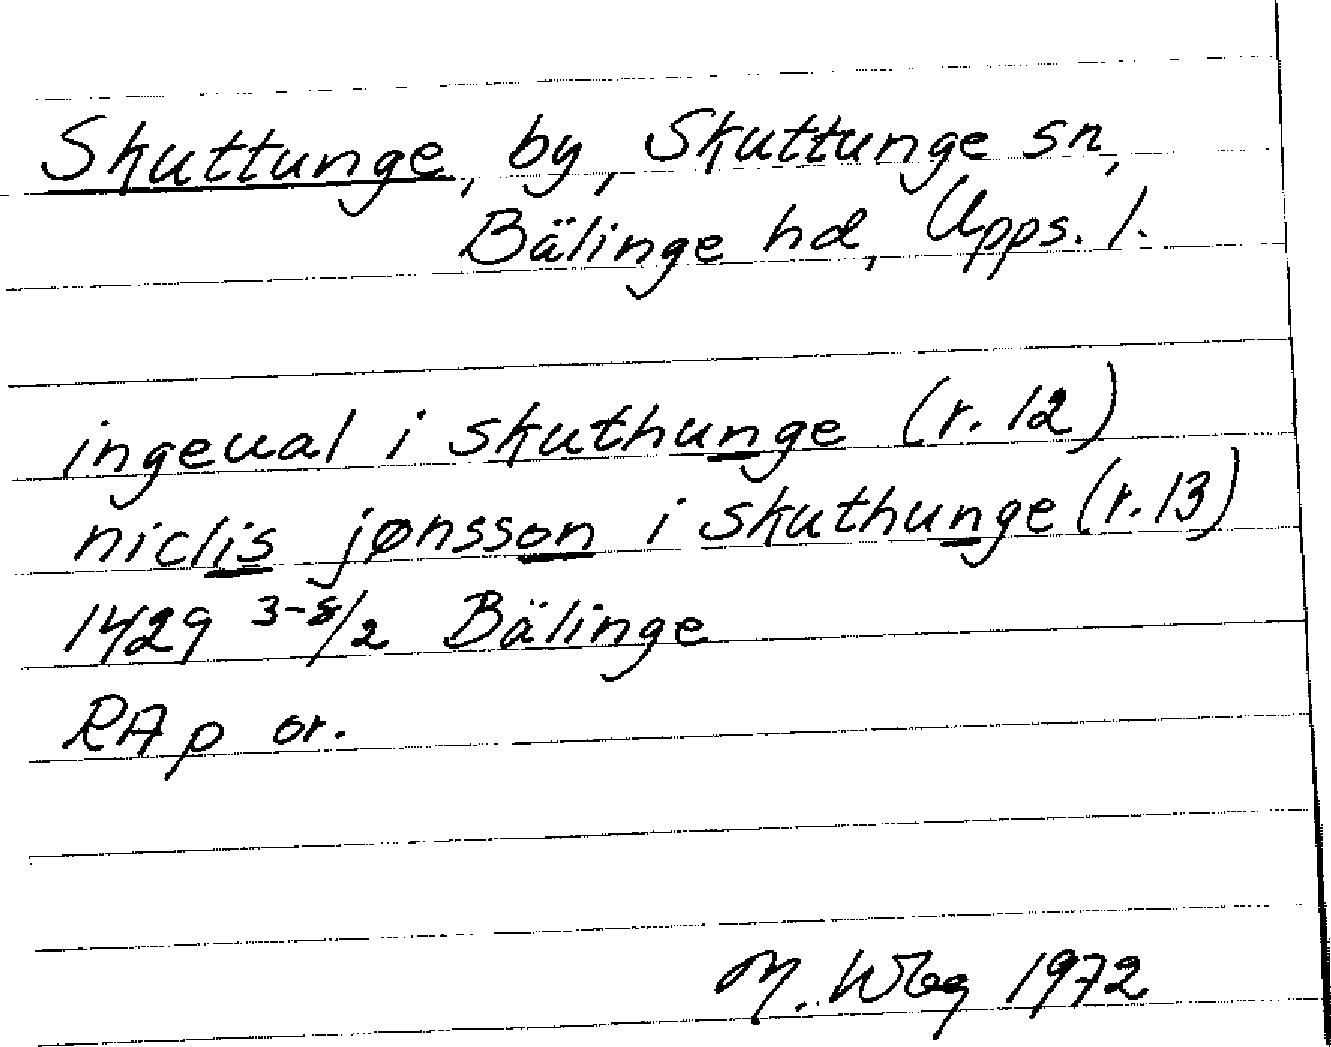 Skuttunge, by, Skuttunge sn,
Bälinge hd, Upps. l.
ingeual i skuthunge (r. 12)
niclis jønsson i skuthunge (r. 13)
1429 3-8/2 Bälinge
RAp or.
M. Wbg 1972